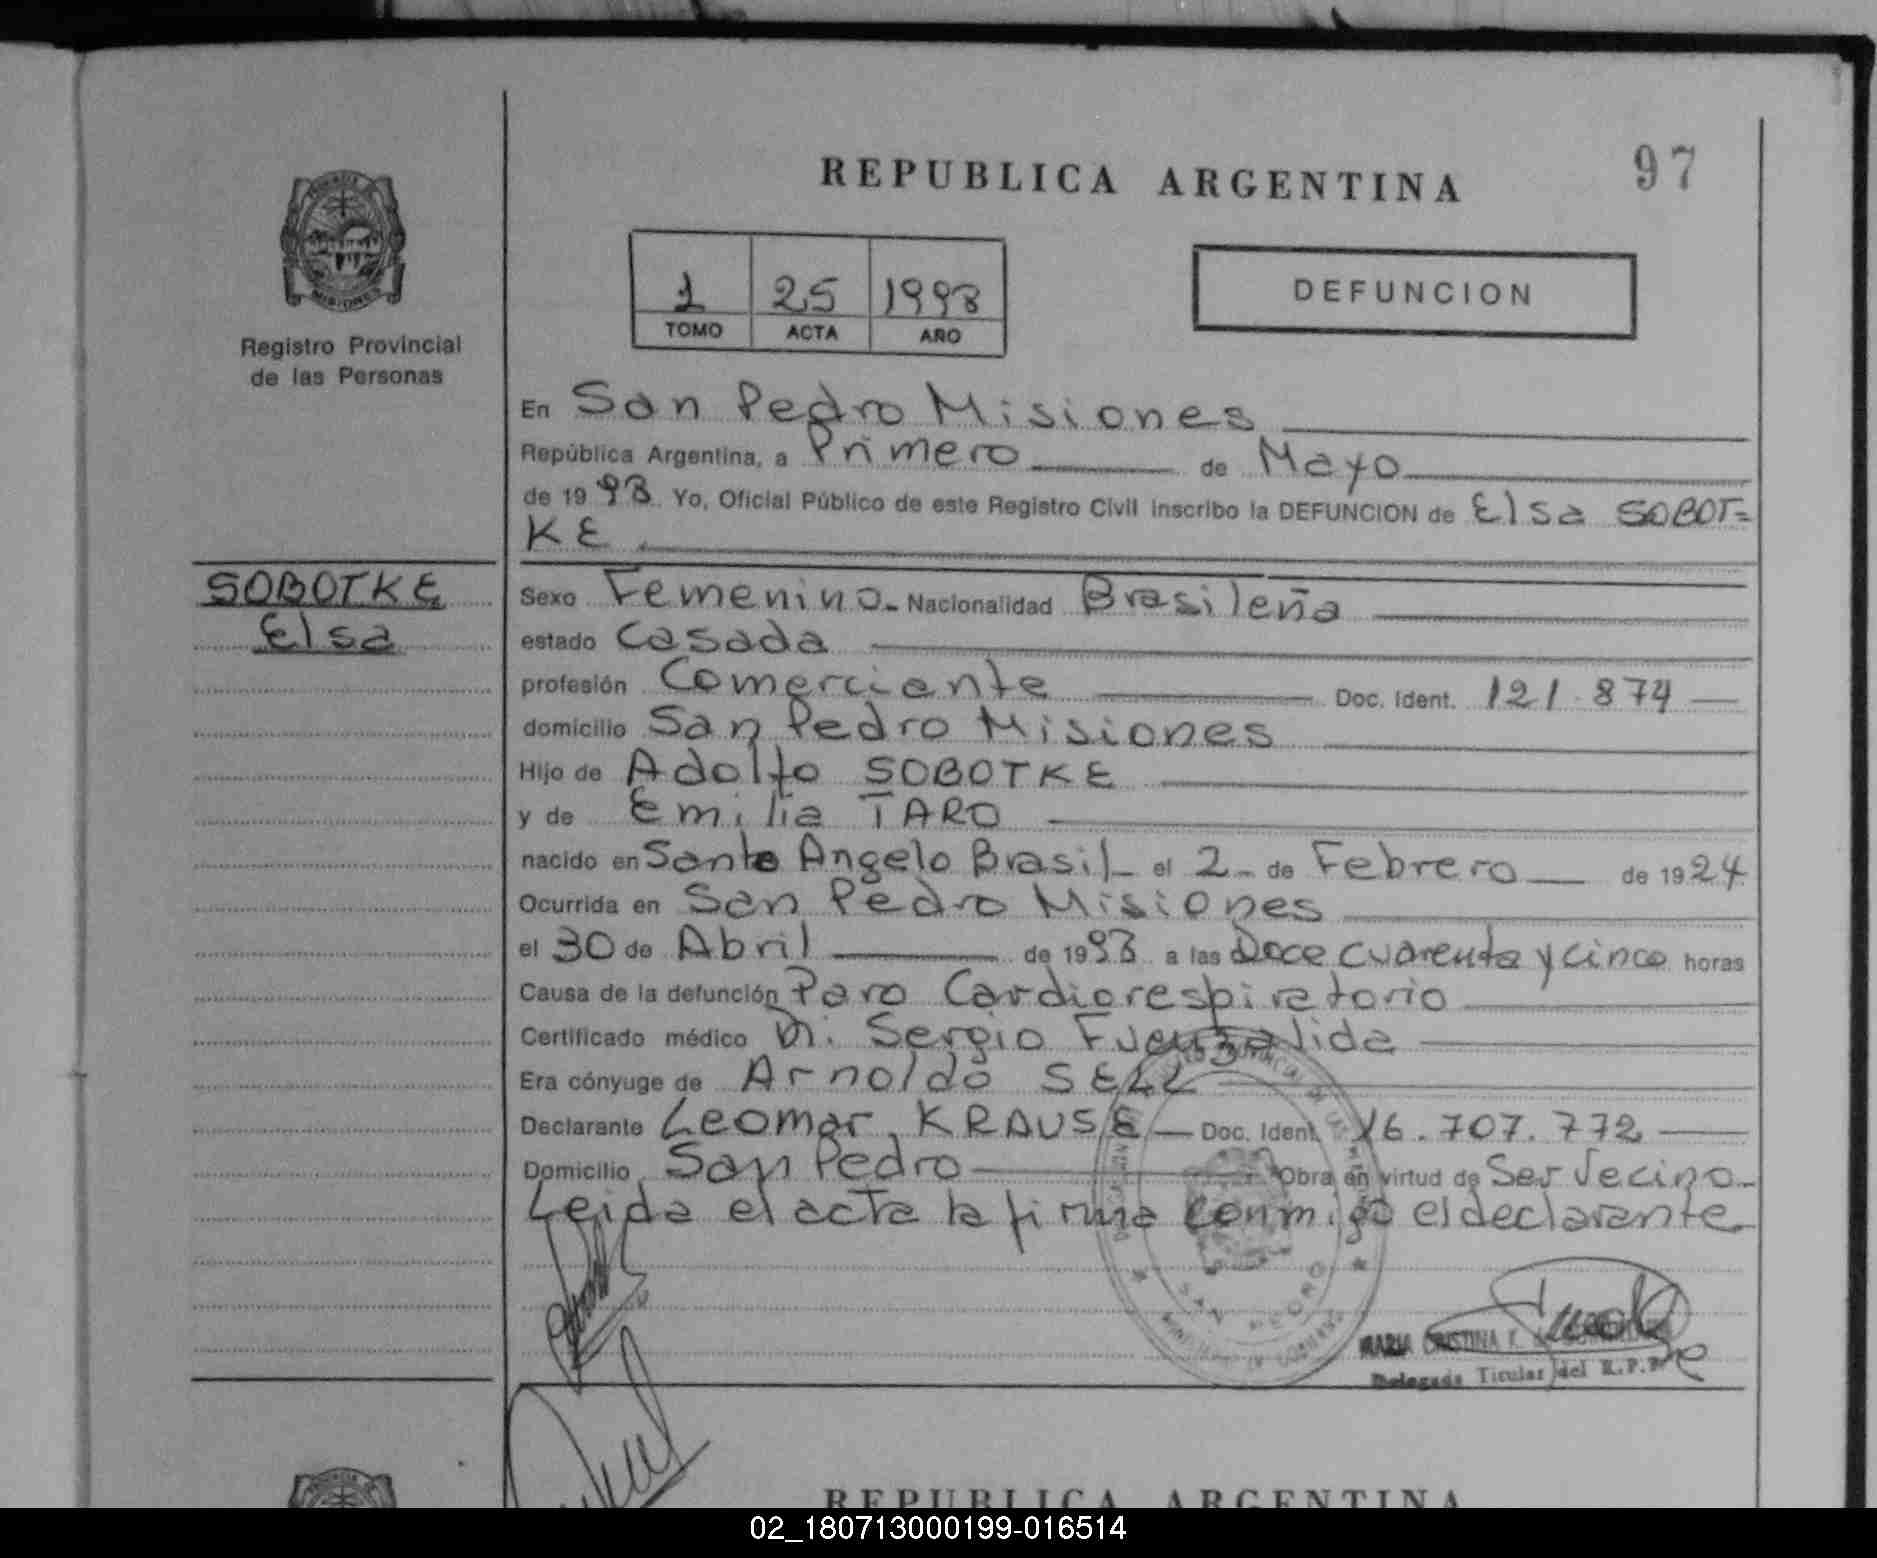 97
REPUBLICA ARGENTINA
PROVINCIA DE
MISIONES
Registro Provincial
de las Personas
1 25 1993
TOMO ACTA AÑO
DEFUNCION
En San Pedro Misiones
República Argentina, a Primero de Mayo
de 1993 Yo, Oficial Público de este Registro Civil inscribo la DEFUNCION de Elsa SOBOT=
KE
SOBOTKE
Elsa
Sexo Femenino. Nacionalidad Brasileña
estado Casada
profesión Comerciante Doc. Ident. 121.874
domicilio San Pedro Misiones
Hijo de Adolfo SOBOTKE
y de Emilia TARO
nacido en Santo Angelo Brasil el 2 de Febrero de 1924
Ocurrida en San Pedro Misiones
el 30 de Abril de 1993 a las Doce cuarenta y cinco horas
Causa de la defunción Paro Cardiorespiratorio
Certificado médico Dr. Sergio Fuenzalida
Era cónyuge de Arnoldo SELL
Declarante Leomar KRAUSE Doc. Ident. 16.707.772
Domicilio San Pedro Obra en virtud de Ser Vecino
Leida el acta la firma conmigo el declarante
SAN PEDRO
MARIA CRISTINA K. de
Delegada Titular del R.P.P.
REPUBLICA ARGENTINA
02_180713000199-016514